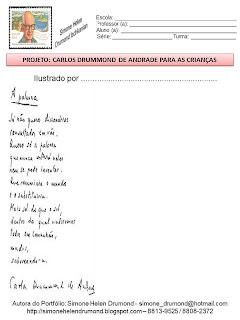 Simone Helen
Drumond Ischkanian
Escola:
Professor (a):
Aluno (a):
Série: Turma:
PROJETO: CARLOS DRUMMOND DE ANDRADE PARA AS CRIANÇAS
Ilustrado por
A palavra
Já não quero dicionários
consultados em vão.
Quero só a palavra
que nunca estará neles
nem se pode inventar.
Que resumiria o mundo
e o substituiria.
Mais sol do que o sol,
dentro da qual vivêssemos
todos em comunhão,
mudos,
saboreando-a.
Carlos Drummond de Andrade
Autora do Portfólio: Simone Helen Drumond - simone_drumond@hotmail.com
http://simonehelendrumond.blogspot.com – 8813-9525 / 8808-2372